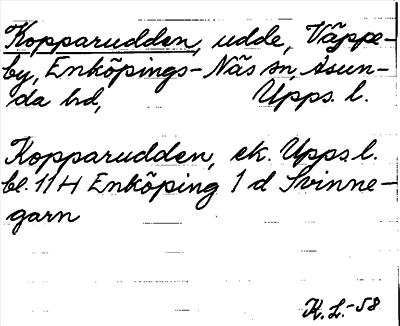 Kopparudden, udde, Väppe-
by, Enköpings-Näs sn, Åsun-
da hd, Upps. l.
Kopparudden, ek. Upps. l.
bl. 114 Enköping 1 d Svinne-
garn
K. L. -58